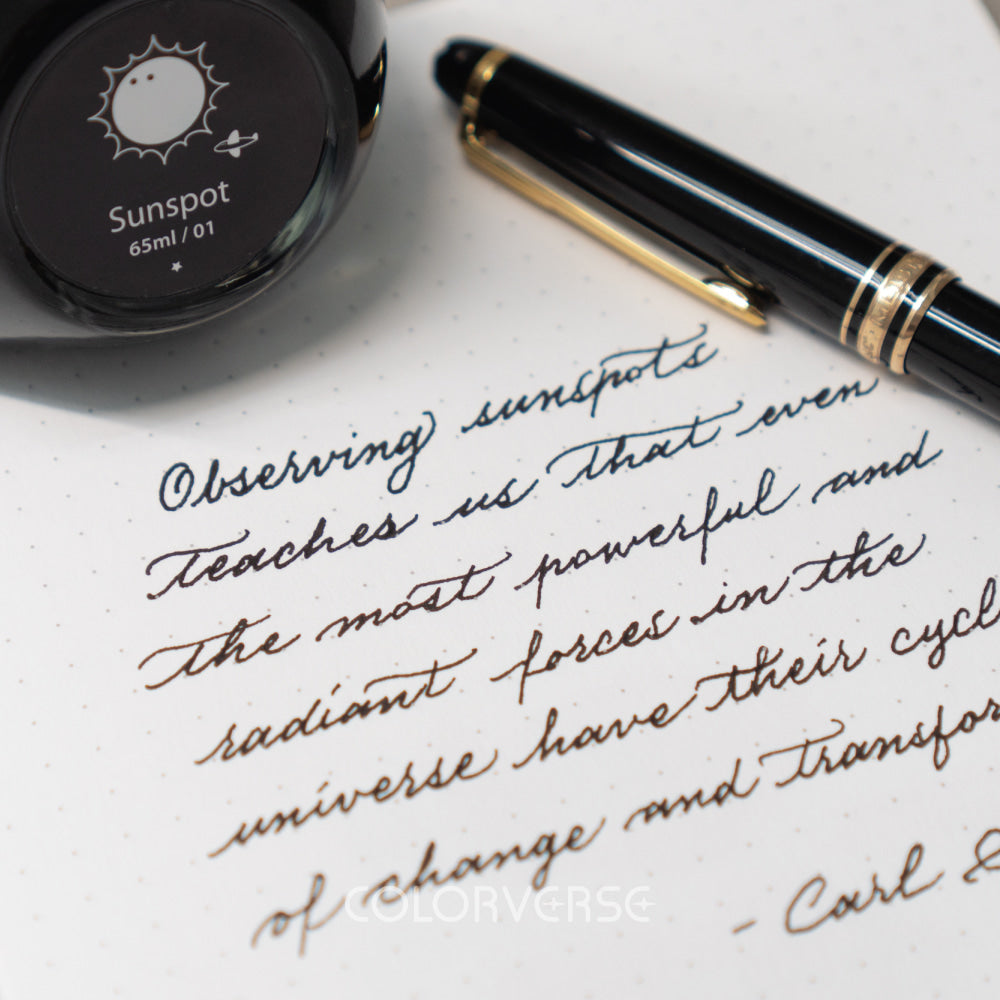 Sunspot
65ml / 01
Observing sunspots
teaches us that even
the most powerful and
radiant forces in the
universe have their cycl
of change and transfor
- Carl
COLORVERSE